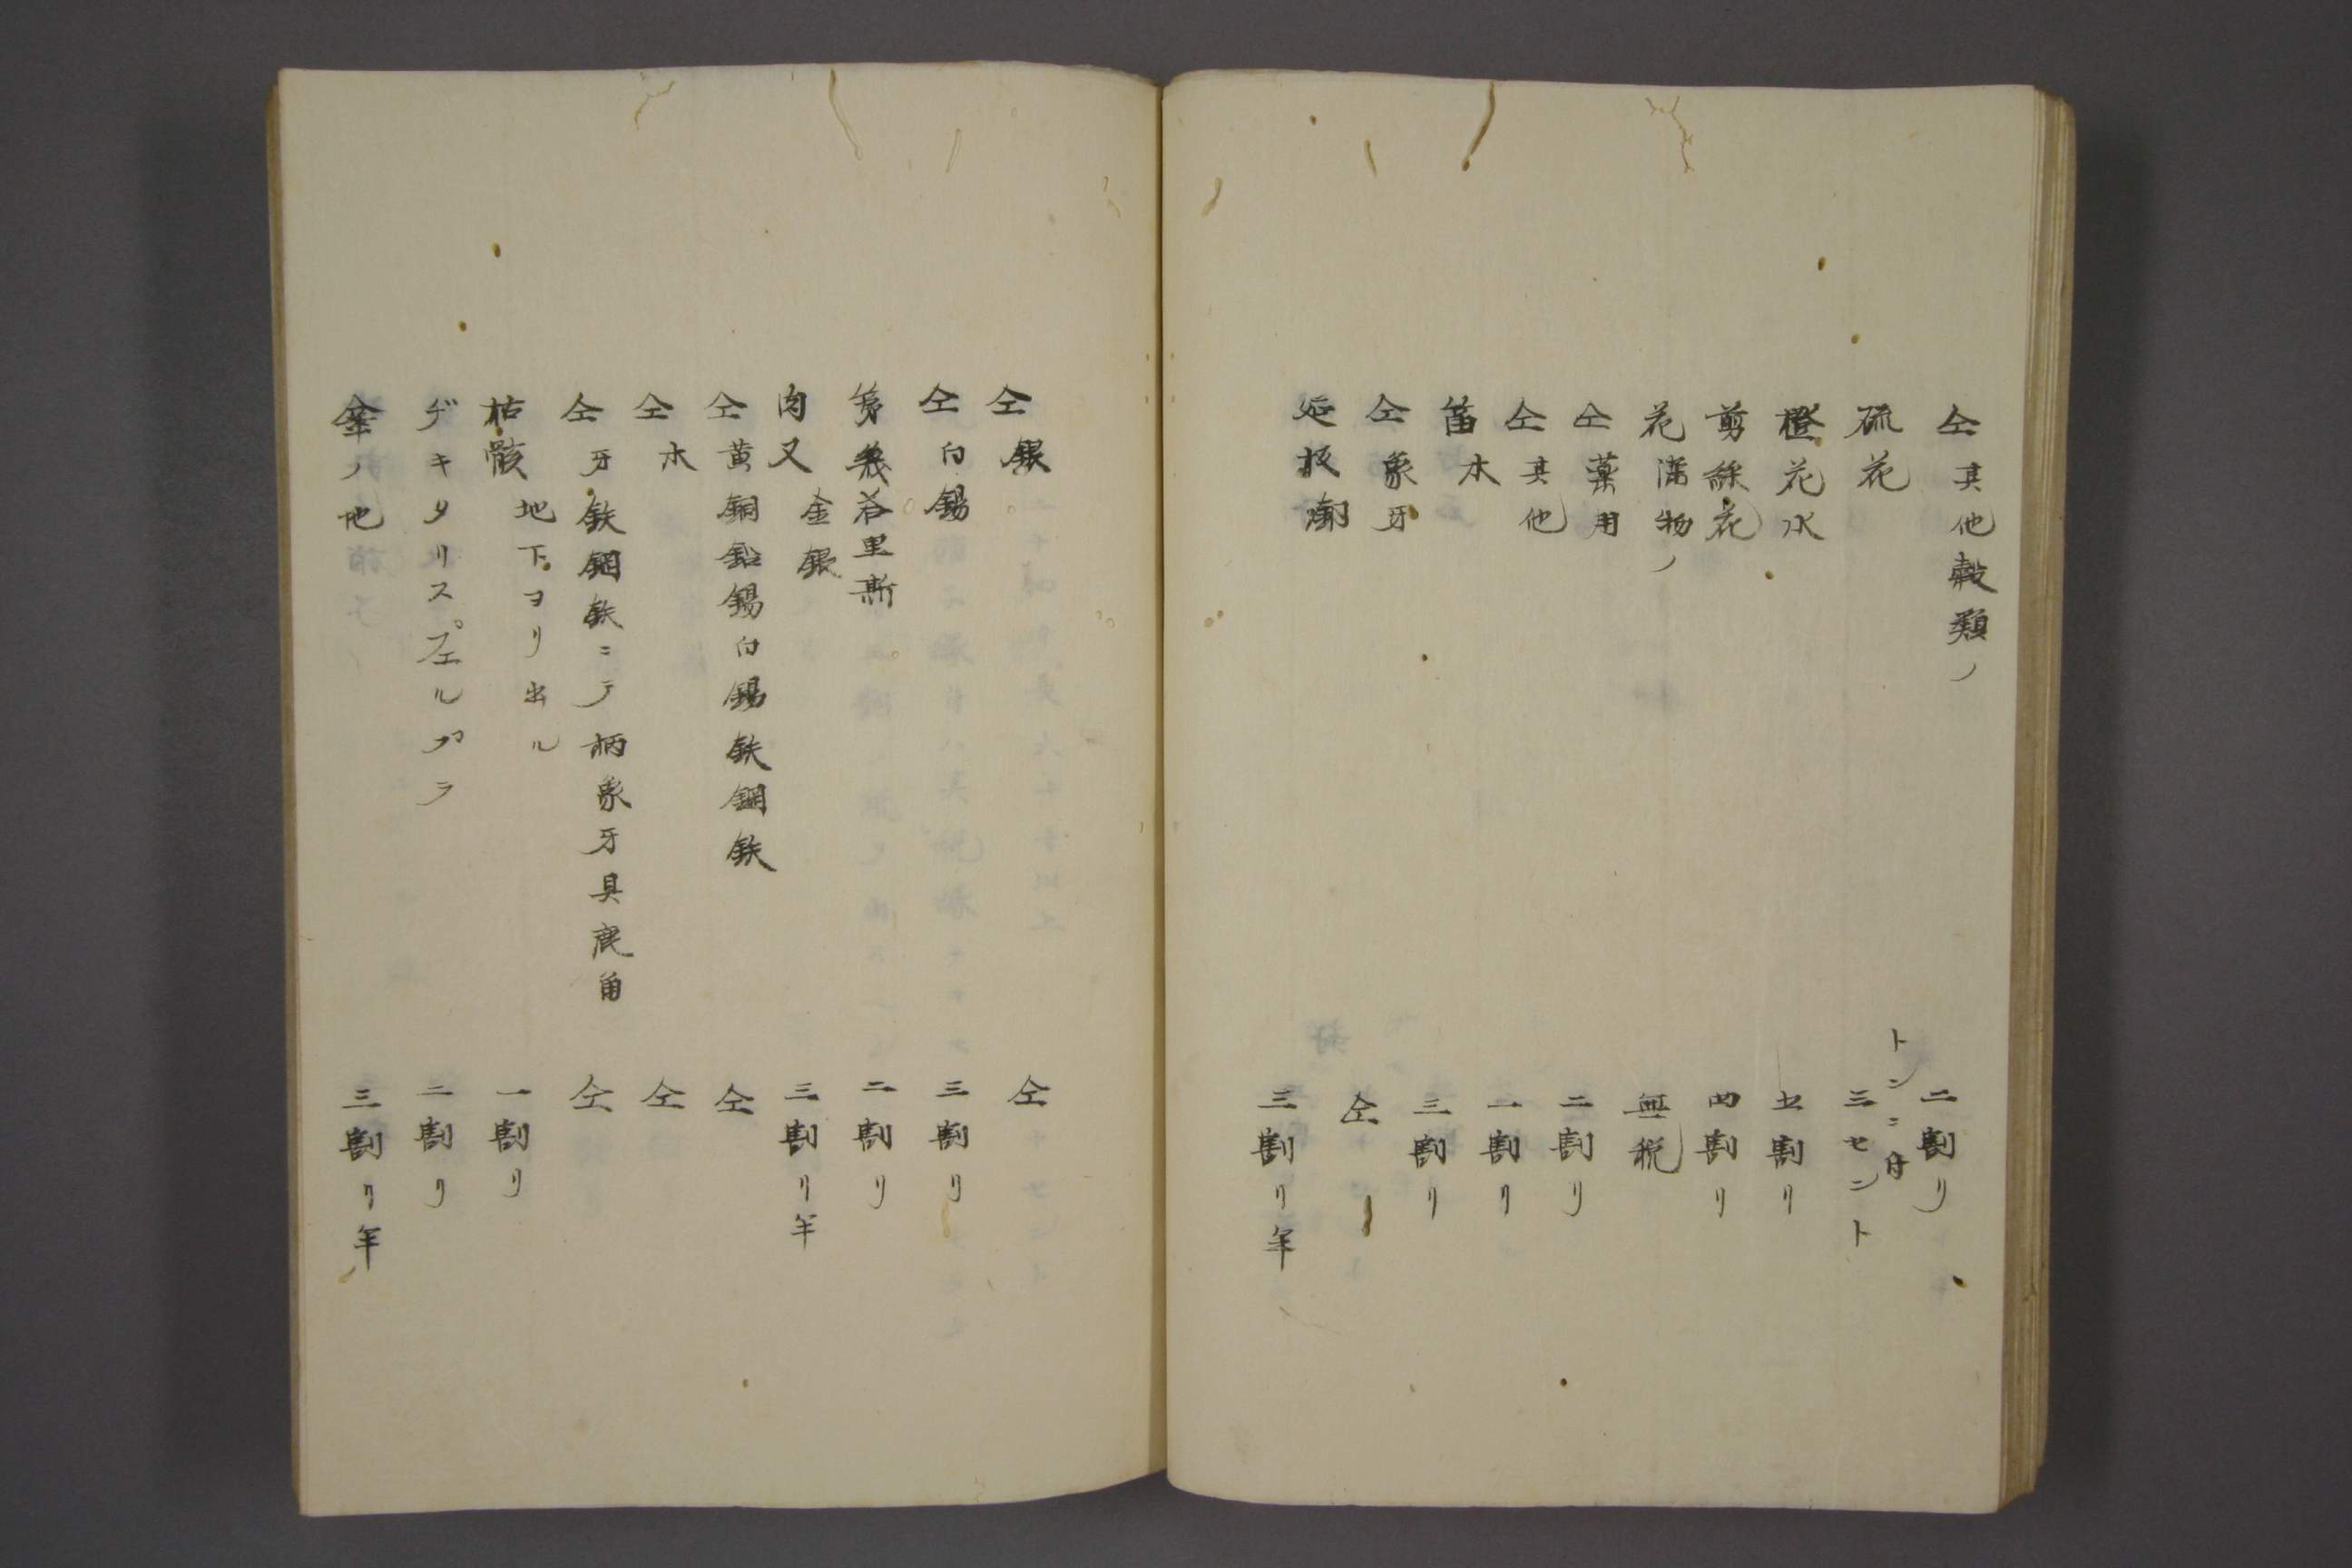 仝其他穀類ノ 二割リ
硫花 トンニ付三セント
橙花水 五割リ
剪綵花 四割リ
花瀉物ノ 無税
仝薬用 二割リ
仝其他 一割リ
笛木 三割リ
仝象牙 仝
延板 三割リ半
仝銀 仝
仝白錫 三割リ
二割リ
肉叉金銀 三割リ半
仝黄銅鉛錫白錫鉄鋼鉄 仝
仝木 仝
仝牙鉄鋼鉄ニテ柄象牙具鹿角 仝
枯骸地下ヨリ出ル 一割リ
デキタリスプエルガラ 二割リ
仝ノ他 三割リ半